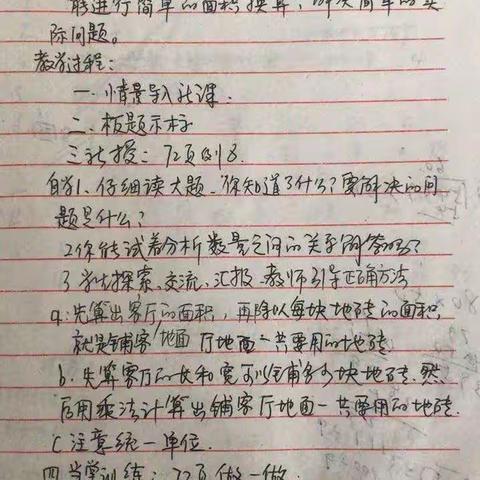 能进行简单的面积换算，解决简单的实
际问题。
教学过程：
一、情景导入新课.
二、板题示标
三、新授：72页例8.
自学1、仔细读大题、你知道了什么？要解决的问
题是什么？
2、你能试着分析数量之间的关系解答吗？
3、学生探索、交流、汇报、教师引导正确方法
a：先算出客厅的面积，再除以每块地砖的面积，
就是铺客地面厅地面一共要用的地砖
b、先算客厅的长和宽可以铺多少块地砖.然
后用乘法计算出铺客厅地面一共要用的地砖.
C注意统一单位.
四、当堂训练：72页做一做.